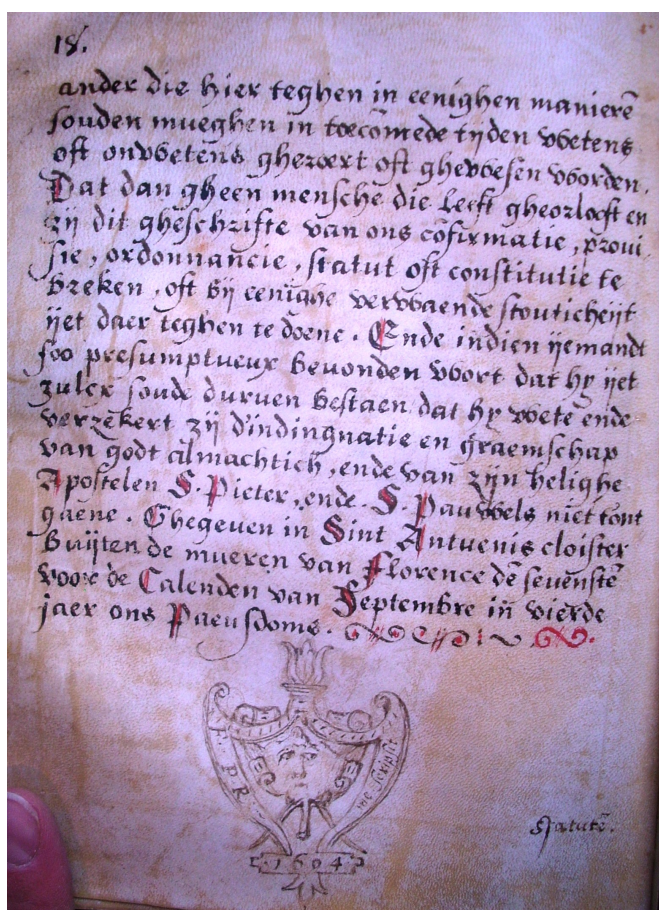 18.
ander die hier teghen in eenighen manierē
souden mueghen in toecomēde tijden wetens
oft onwetens gheroert oft ghewesen worden.
Dat dan gheen mensche die leeft gheorloeft en
zij dit gheschrifte van ons cōfirmatie, proui
sie, ordonnancie, statut oft constitutie te
breken, oft bij eenighe verwaende stouticheijt
ijet daer teghen te doene. Ende indien ijemandt
soo presumptueux beuonden woort dat hy ijet
zulcx soude duruen bestaen dat hy wete ende
verzekert zij d'indingnatie en graemschap
van godt almachtich, ende van zijn helighe
Apostelen S. Pieter, ende S. Pauwels niet tont
gaene. Ghegeven in Sint Antuenis cloister
Buijten de mueren van Florence dē seuenstē
voor de Calenden van Septembre in vierde
jaer ons Paeusdoms.
F. P. R. me scripsit
1604
Statutē.